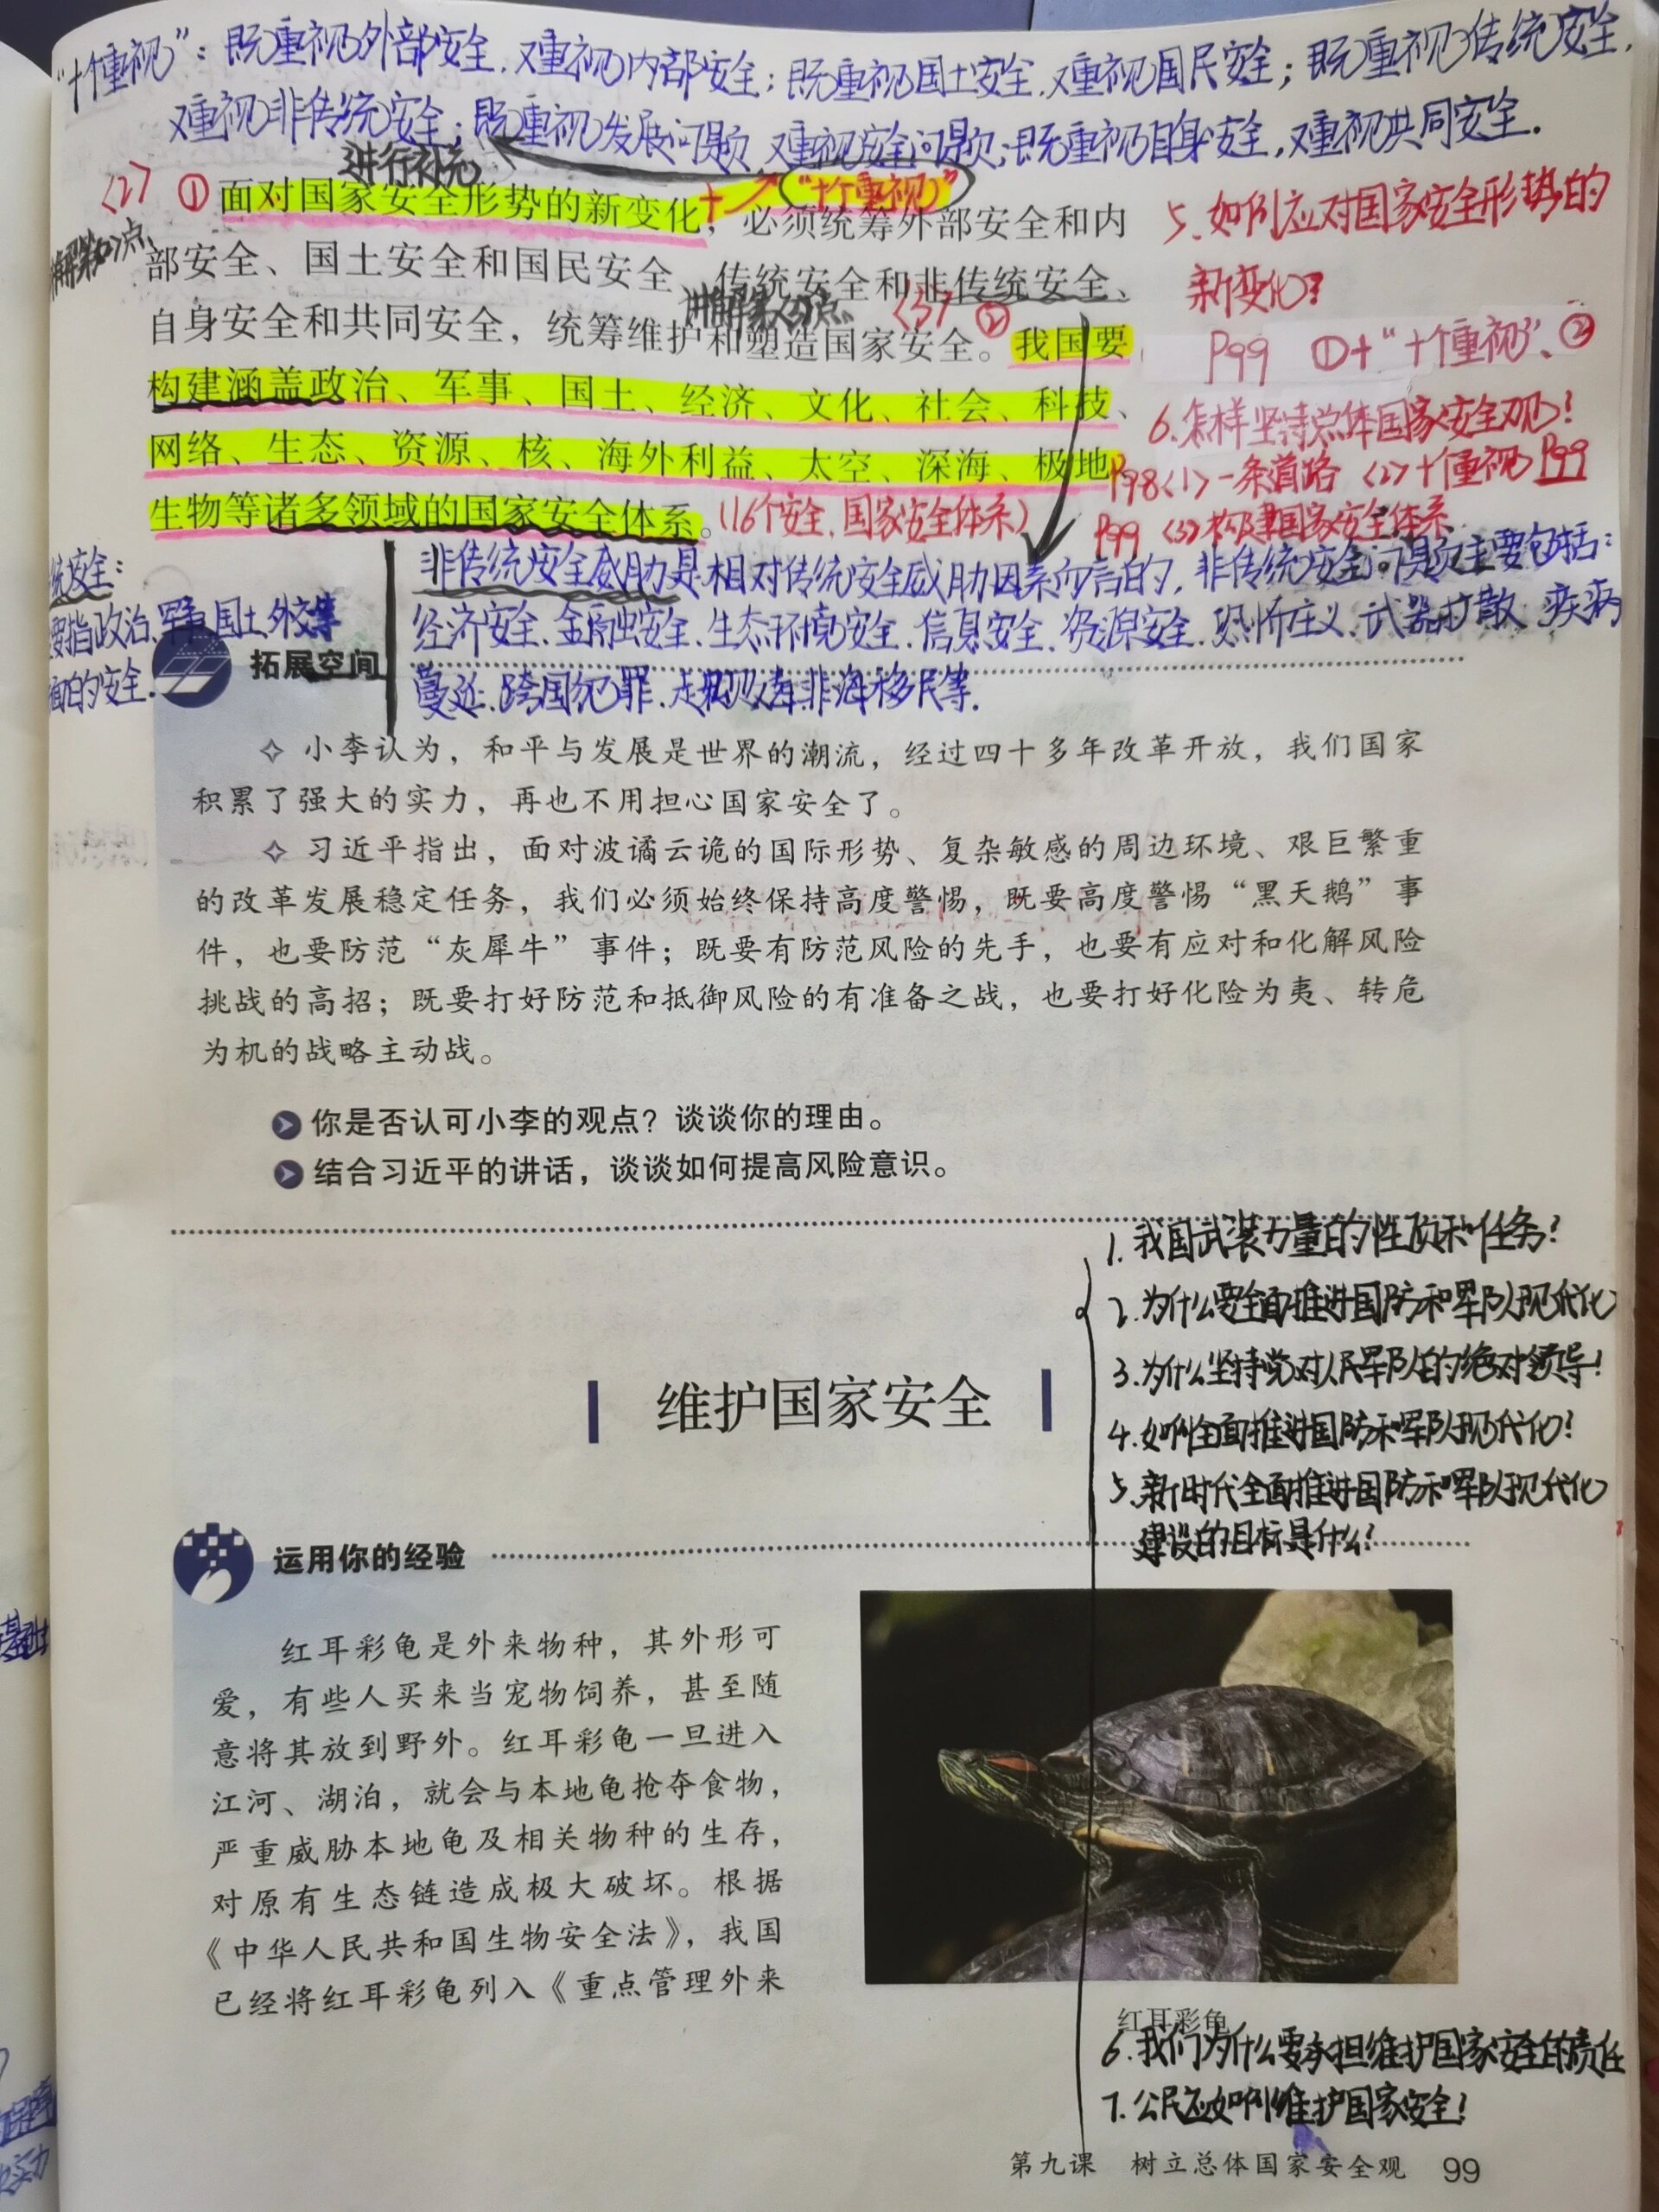 “十个重视”：既重视外部安全，又重视内部安全；既重视国土安全，又重视国民安全；既重视传统安全，
又重视非传统安全；既重视发展问题，又重视安全问题；既重视自身安全，又重视共同安全．
进行补充
〈2〉 ① 面对国家安全形势的新变化，必须统筹外部安全和内
＋ “十个重视”
部安全、国土安全和国民安全、传统安全和非传统安全、
〈3〉 ②
自身安全和共同安全，统筹维护和塑造国家安全。我国要
构建涵盖政治、军事、国土、经济、文化、社会、科技、
网络、生态、资源、核、海外利益、太空、深海、极地、
生物等诸多领域的国家安全体系。（16个安全．国家安全体系）
5．如何应对国家安全形势的
新变化？
P99 ①＋“十个重视”、②
6．怎样坚持总体国家安全观？
P98〈1〉一条道路 〈2〉十个重视 P99
P99 〈3〉构建国家安全体系
统安全：
要指政治、军事、国土、外交等
面的安全．
非传统安全威胁是相对传统安全威胁因素而言的，非传统安全问题主要包括：
经济安全．金融安全．生态环境安全．信息安全．资源安全．恐怖主义．武器扩散．疾病
蔓延．跨国犯罪．走私贩毒．非法移民等．
拓展空间
小李认为，和平与发展是世界的潮流，经过四十多年改革开放，我们国家
积累了强大的实力，再也不用担心国家安全了。
习近平指出，面对波谲云诡的国际形势、复杂敏感的周边环境、艰巨繁重
的改革发展稳定任务，我们必须始终保持高度警惕，既要高度警惕“黑天鹅”事
件，也要防范“灰犀牛”事件；既要有防范风险的先手，也要有应对和化解风险
挑战的高招；既要打好防范和抵御风险的有准备之战，也要打好化险为夷、转危
为机的战略主动战。
你是否认可小李的观点？谈谈你的理由。
结合习近平的讲话，谈谈如何提高风险意识。
1．我国武装力量的性质和任务？
2．为什么要全面推进国防和军队现代化
3．为什么坚持党对人民军队的绝对领导？
4．如何全面推进国防和军队现代化？
5．新时代全面推进国防和军队现代化
建设的目标是什么？
维护国家安全
运用你的经验
红耳彩龟是外来物种，其外形可
爱，有些人买来当宠物饲养，甚至随
意将其放到野外。红耳彩龟一旦进入
江河、湖泊，就会与本地龟抢夺食物，
严重威胁本地龟及相关物种的生存，
对原有生态链造成极大破坏。根据
《中华人民共和国生物安全法》，我国
已经将红耳彩龟列入《重点管理外来
红耳彩龟
6．我们为什么要承担维护国家安全的责任
7．公民应如何维护国家安全？
第九课 树立总体国家安全观 99